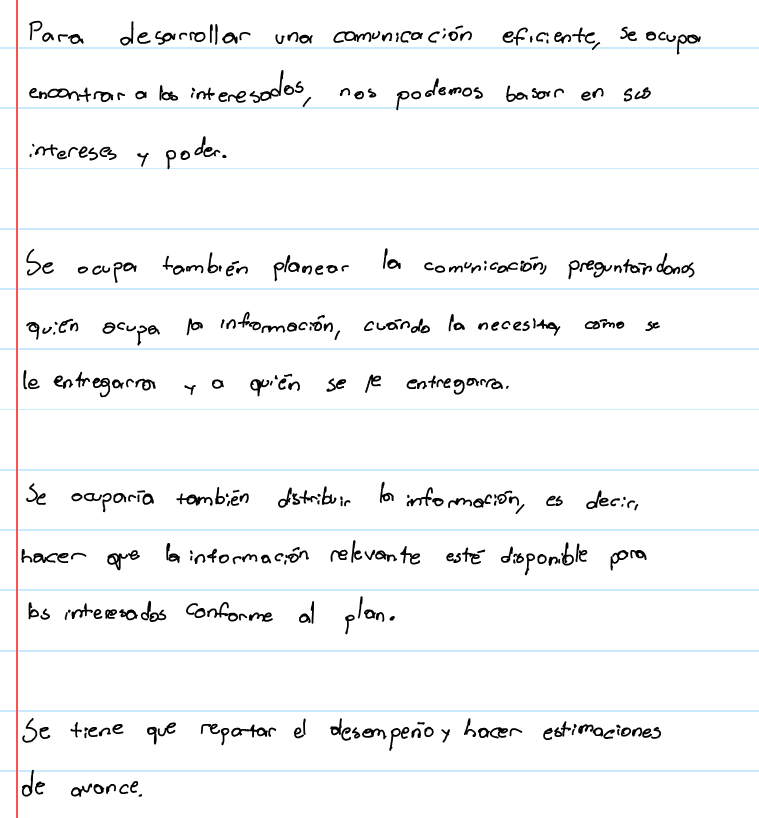 Para desarrollar una comunicación eficiente, se ocupa
encontrar a los interesados, nos podemos basar en sus
intereses y poder.
Se ocupa también planear la comunicación, preguntándonos
quién ocupa la información, cuándo la necesita, cómo se
le entregarra y a quién se le entregarra.
Se ocuparía también distribuir la información, es decir,
hacer que la información relevante esté disponible para
los interesados conforme al plan.
Se tiene que reportar el desempeño y hacer estimaciones
de avance.